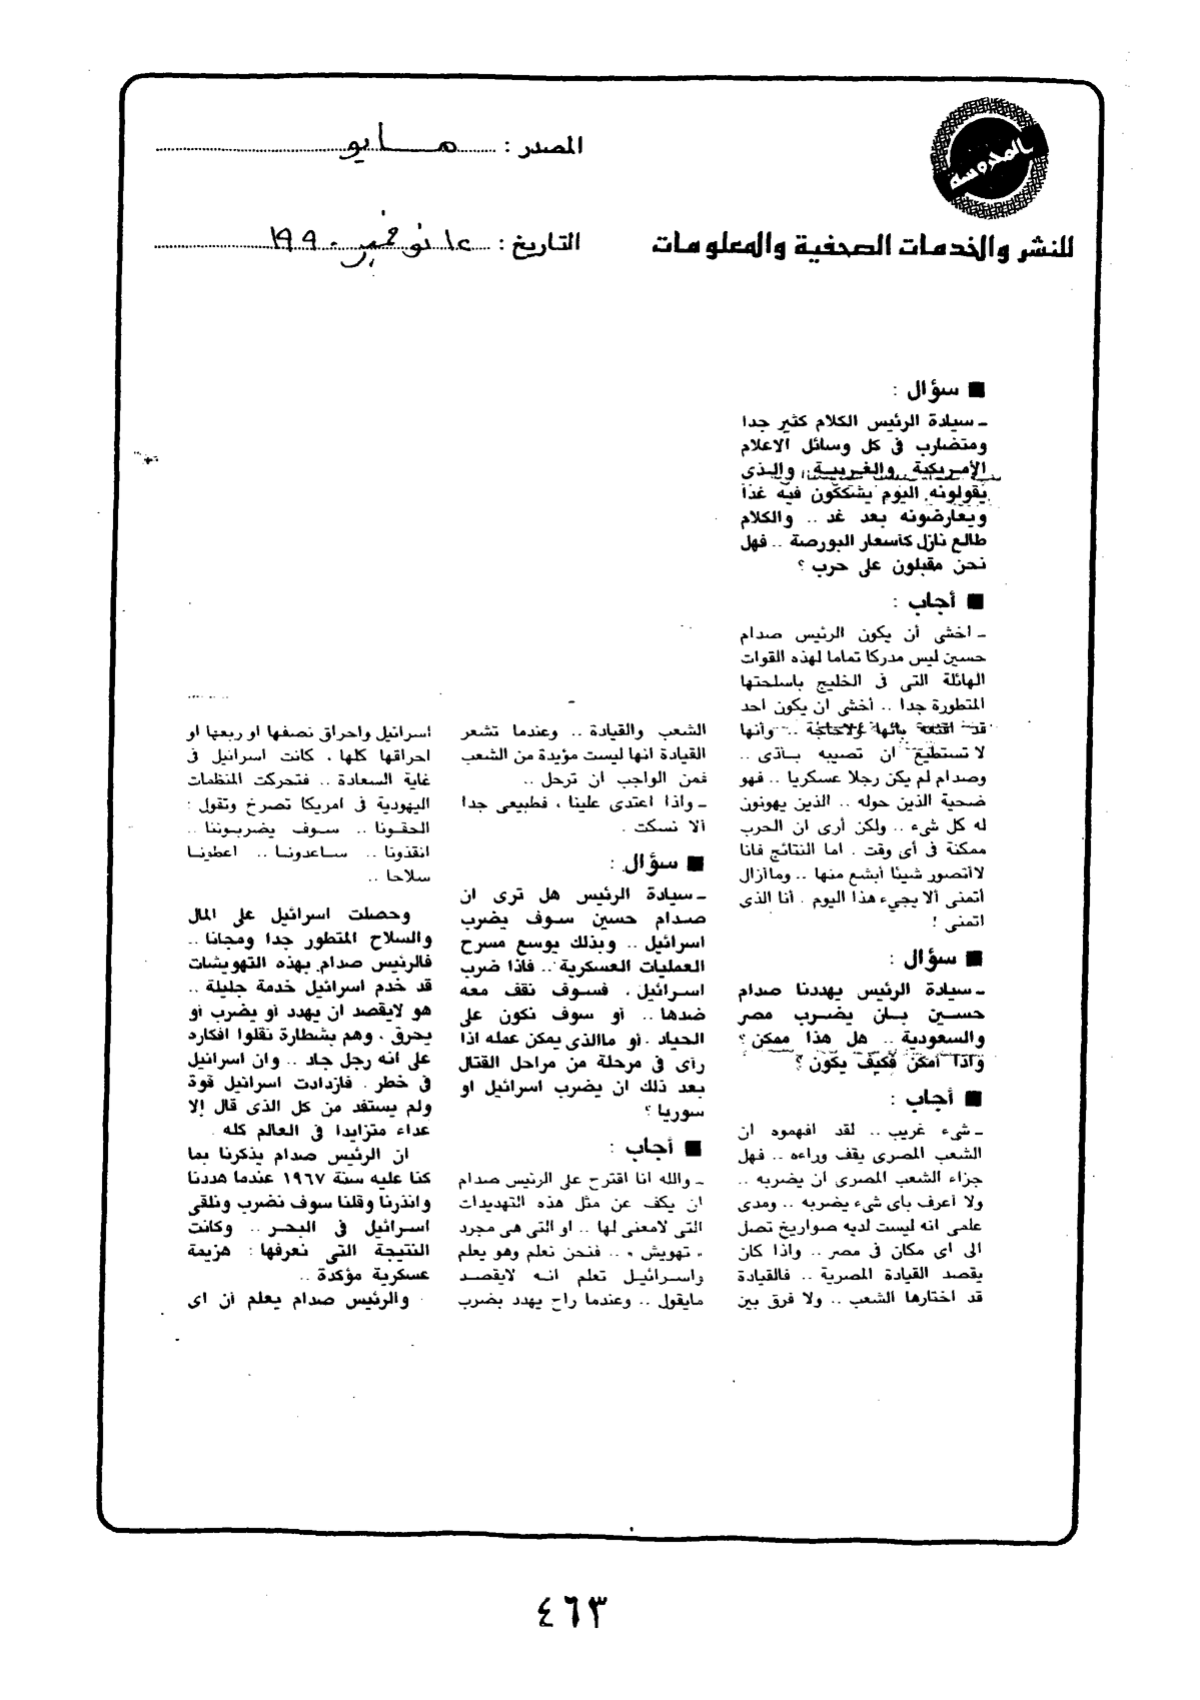 المحروسة
للنشر والخدمات الصحفية والمعلومات
المصدر : مايو
التاريخ : ١٢ نوفمبر ١٩٩٠
■ سؤال :
ـ سيادة الرئيس الكلام كثير جدا
ومتضارب فى كل وسائل الاعلام
الأمريكية والغربية، والذى
يقولونه اليوم يشككون فيه غدا
ويعارضونه بعد غد .. والكلام
طالع نازل كأسعار البورصة .. فهل
نحن مقبلون على حرب ؟
■ أجاب :
ـ اخشى أن يكون الرئيس صدام
حسين ليس مدركا تماما لهذه القوات
الهائلة التى فى الخليج باسلحتها
المتطورة جدا .. أخشى ان يكون احد
قد اقنعه بانها ولاحاجة .. وأنها
لا تستطيع ان تصيبه بأذى ..
وصدام لم يكن رجلا عسكريا .. فهو
ضحية الذين حوله .. الذين يهونون
له كل شىء .. ولكن أرى ان الحرب
ممكنة فى أى وقت . اما النتائج فانا
لاأتصور شيئا أبشع منها .. ومأزال
أتمنى ألا يجىء هذا اليوم . أنا الذى
اتمنى !
■ سؤال :
ـ سيادة الرئيس يهددنا صدام
حسين بان يضرب مصر
والسعودية .. هل هذا ممكن ؟
واذا أمكن فكيف يكون ؟
■ أجاب :
ـ شىء غريب .. لقد افهموه ان
الشعب المصرى يقف وراءه .. فهل
جزاء الشعب المصرى ان يضربه ..
ولا أعرف باى شىء يضربه .. ومدى
علمى انه ليست لديه صواريخ تصل
الى اى مكان فى مصر .. واذا كان
يقصد القيادة المصرية .. فالقيادة
قد اختارها الشعب .. ولا فرق بين
الشعب والقيادة .. وعندما تشعر
القيادة انها ليست مؤيدة من الشعب
فمن الواجب ان ترحل ..
ـ واذا اعتدى علينا ، فطبيعى جدا
ألا نسكت .
■ سؤال :
ـ سيادة الرئيس هل ترى ان
صدام حسين سوف يضرب
اسرائيل .. وبذلك يوسع مسرح
العمليات العسكرية .. فاذا ضرب
اسرائيل ، فسوف نقف معه
ضدها .. أو سوف نكون على
الحياد . أو ماالذى يمكن عمله اذا
رأى فى مرحلة من مراحل القتال
بعد ذلك ان يضرب اسرائيل او
سوريا ؟
■ أجاب :
ـ والله انا اقترح على الرئيس صدام
ان يكف عن مثل هذه التهديدات
التى لامعنى لها .. او التى هى مجرد
« تهويش » .. فنحن نعلم وهو يعلم
واسرائيل تعلم انه لايقصد
مايقول .. وعندما راح يهدد بضرب
اسرائيل واحراق نصفها او ربعها او
احراقها كلها ، كانت اسرائيل فى
غاية السعادة .. فتحركت المنظمات
اليهودية فى امريكا تصرخ وتقول :
الحقونا .. سوف يضربوننا ..
انقذونا .. ساعدونا .. اعطونا
سلاحا ..
وحصلت اسرائيل على المال
والسلاح المتطور جدا ومجانا ..
فالرئيس صدام بهذه التهويشات
قد خدم اسرائيل خدمة جليلة ..
هو لايقصد ان يهدد أو يضرب أو
يحرق . وهم بشطارة نقلوا افكاره
على انه رجل جاد .. وان اسرائيل
فى خطر . فازدادت اسرائيل قوة
ولم يستفد من كل الذى قال إلا
عداء متزايدا فى العالم كله .
ان الرئيس صدام يذكرنا بما
كنا عليه سنة ١٩٦٧ عندما هددنا
وانذرنا وقلنا سوف نضرب ونلقى
اسرائيل فى البحر .. وكانت
النتيجة التى نعرفها : هزيمة
عسكرية مؤكدة ..
والرئيس صدام يعلم أن اى
٤٦٣